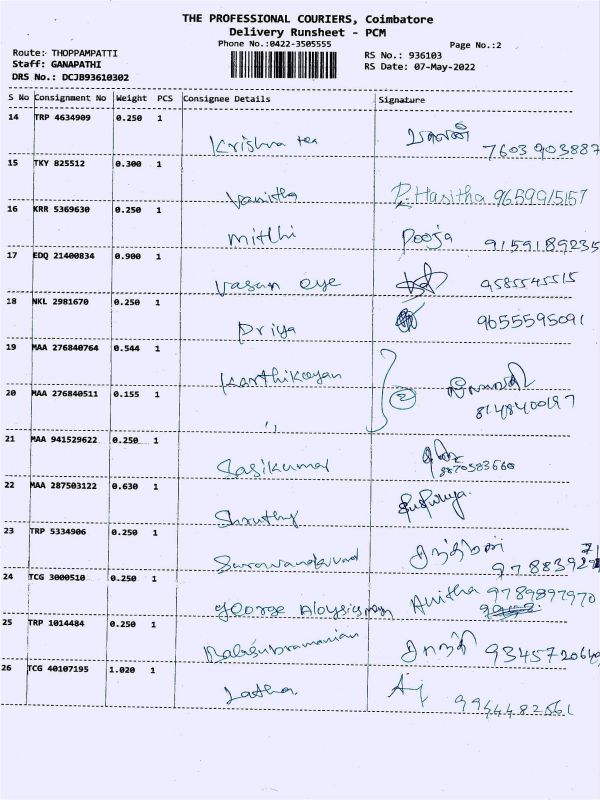 THE PROFESSIONAL COURIERS, Coimbatore
Delivery Runsheet - PCM
Phone No.:0422-3505555
Page No.:2
Route: THOPPAMPATTI
Staff: GANAPATHI
DRS No.: DCJB93610302
RS No.: 936103
RS Date: 07-May-2022
S No Consignment No Weight PCS Consignee Details Signature
14 TRP 4634909 0.250 1
Krishna tea 7603903887
15 TKY 825512 0.300 1
Vanitha P. Hasitha 9659915157
16 KRR 5369630 0.250 1
Mithi Pooja 9159189235
17 EDQ 21400834 0.900 1
Vasan eye 9585545515
18 NKL 2981670 0.250 1
Priya 9655595091
19 MAA 276840764 0.544 1
Karthikeyan
20 MAA 276840511 0.155 1
〃 2 8148400197
21 MAA 941529622 0.250 1
Sasikumar 9870583660
22 MAA 287503122 0.630 1
Shruthy
23 TRP 5334906 0.250 1
24 TCG 3000510 0.250 1
George Aloysies Anitha 9789897970
25 TRP 1014484 0.250 1
Balasubramanian 9345720649
26 TCG 40107195 1.020 1
Latha 9944482561